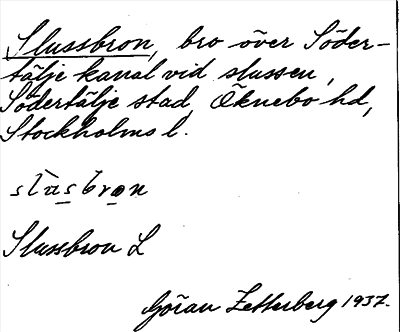 Slussbron, bro över Söder-
tälje kanal vid slussen,
Södertälje stad, Öknebo hd,
Stockholms l.
slùsbron
Slussbron L
Göran Zetterberg 1937.